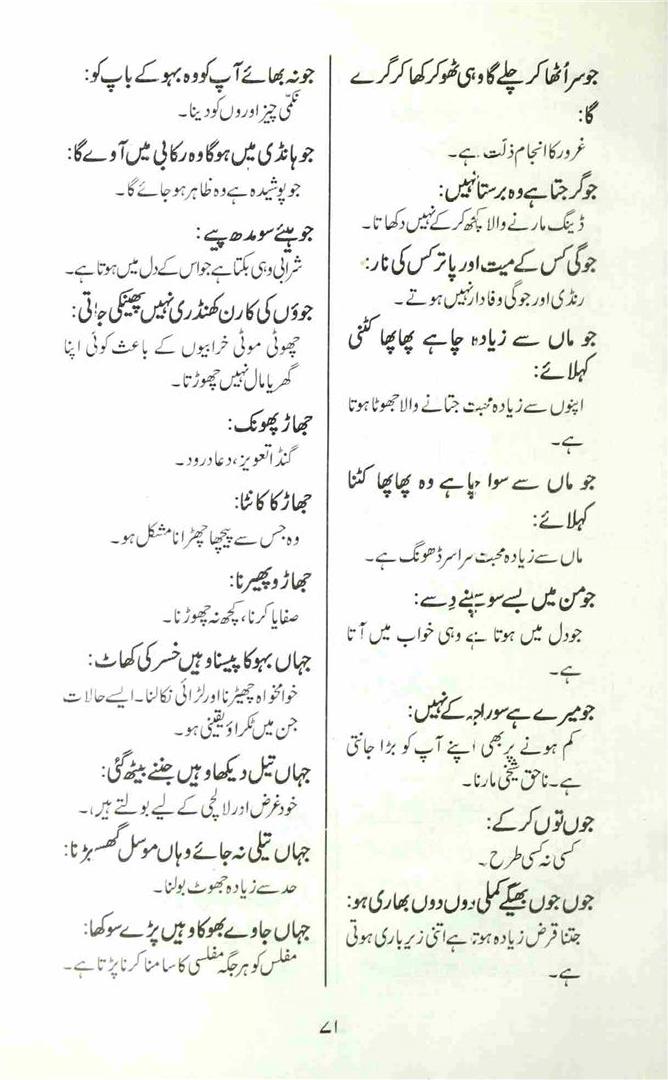 جو سر اُٹھا کر چلے گا وہی ٹھوکر کھا کر گرے
گا:
غرور کا انجام ذلت ہے۔
جو گرجتا ہے وہ برستا نہیں:
ڈینگ مارنے والا کچھ کر کے نہیں دکھاتا۔
جوگی کس کے میت اور پاتر کس کی نار:
رنڈی اور جوگی وفادار نہیں ہوتے۔
جو ماں سے زیادہ چاہے پھاپھا کٹنی
کہلائے:
اپنوں سے زیادہ محبت جتانے والا جھوٹا ہوتا
ہے۔
جو ماں سے سوا چاہے وہ پھاپھا کٹنا
کہلائے:
ماں سے زیادہ محبت سراسر ڈھونگ ہے۔
جو من میں بسے سو سپنے دِسے:
جو دل میں ہوتا ہے وہی خواب میں آتا
ہے۔
جو میرے ہے سو راجہ کے نہیں:
کم ہونے پر بھی اپنے آپ کو بڑا جانتی
ہے۔ ناحق شیخی مارنا۔
جوں توں کر کے:
کسی نہ کسی طرح۔
جوں جوں بھیگے کملی دوں دوں بھاری ہو:
جتنا قرض زیادہ ہوتا ہے اتنی زیرباری ہوتی
ہے۔
جو نہ بھائے آپ کو وہ بہو کے باپ کو:
نکمّی چیز اوروں کو دینا۔
جو ہانڈی میں ہوگا وہ رکابی میں آوے گا:
جو پوشیدہ ہے وہ ظاہر ہو جائے گا۔
جو ہیئے سو مدھ پیے:
شرابی وہی بکتا ہے جو اس کے دل میں ہوتا ہے۔
جوؤں کی کارن کھنڈری نہیں پھینکی جاتی:
چھوٹی موٹی خرابیوں کے باعث کوئی اپنا
گھر یا مال نہیں چھوڑتا۔
جھاڑ پھونک:
گنڈا تعویز، دعا درود۔
جھاڑ کا کانٹا:
وہ جس سے پیچھا چھڑانا مشکل ہو۔
جھاڑو پھیرنا:
صفایا کرنا، کچھ نہ چھوڑنا۔
جہاں بہو کا پیسنا وہیں خسر کی کھاٹ:
خوامخواہ چھیڑنا اور لڑائی نکالنا۔ ایسے حالات
جن میں ٹکراؤ یقینی ہو۔
جہاں تیل دیکھا وہیں جننے بیٹھ گئی:
خودغرض اور لالچی کے لیے بولتے ہیں۔
جہاں تیلی نہ جائے وہاں موسل گھسیڑنا:
حد سے زیادہ جھوٹ بولنا۔
جہاں جاوے بھوکا وہیں پڑے سوکھا:
مفلس کو ہر جگہ مفلسی کا سامنا کرنا پڑتا ہے۔
۷۱